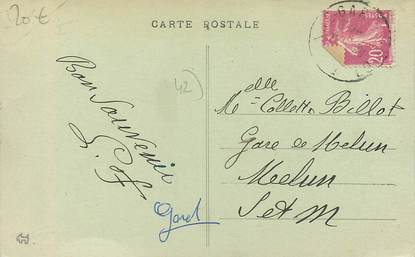 20€
CARTE POSTALE
GARE
20c
42
Bon Souvenir
Melle Collette Billot
Gare de Melun
Melun
S et M
Gard